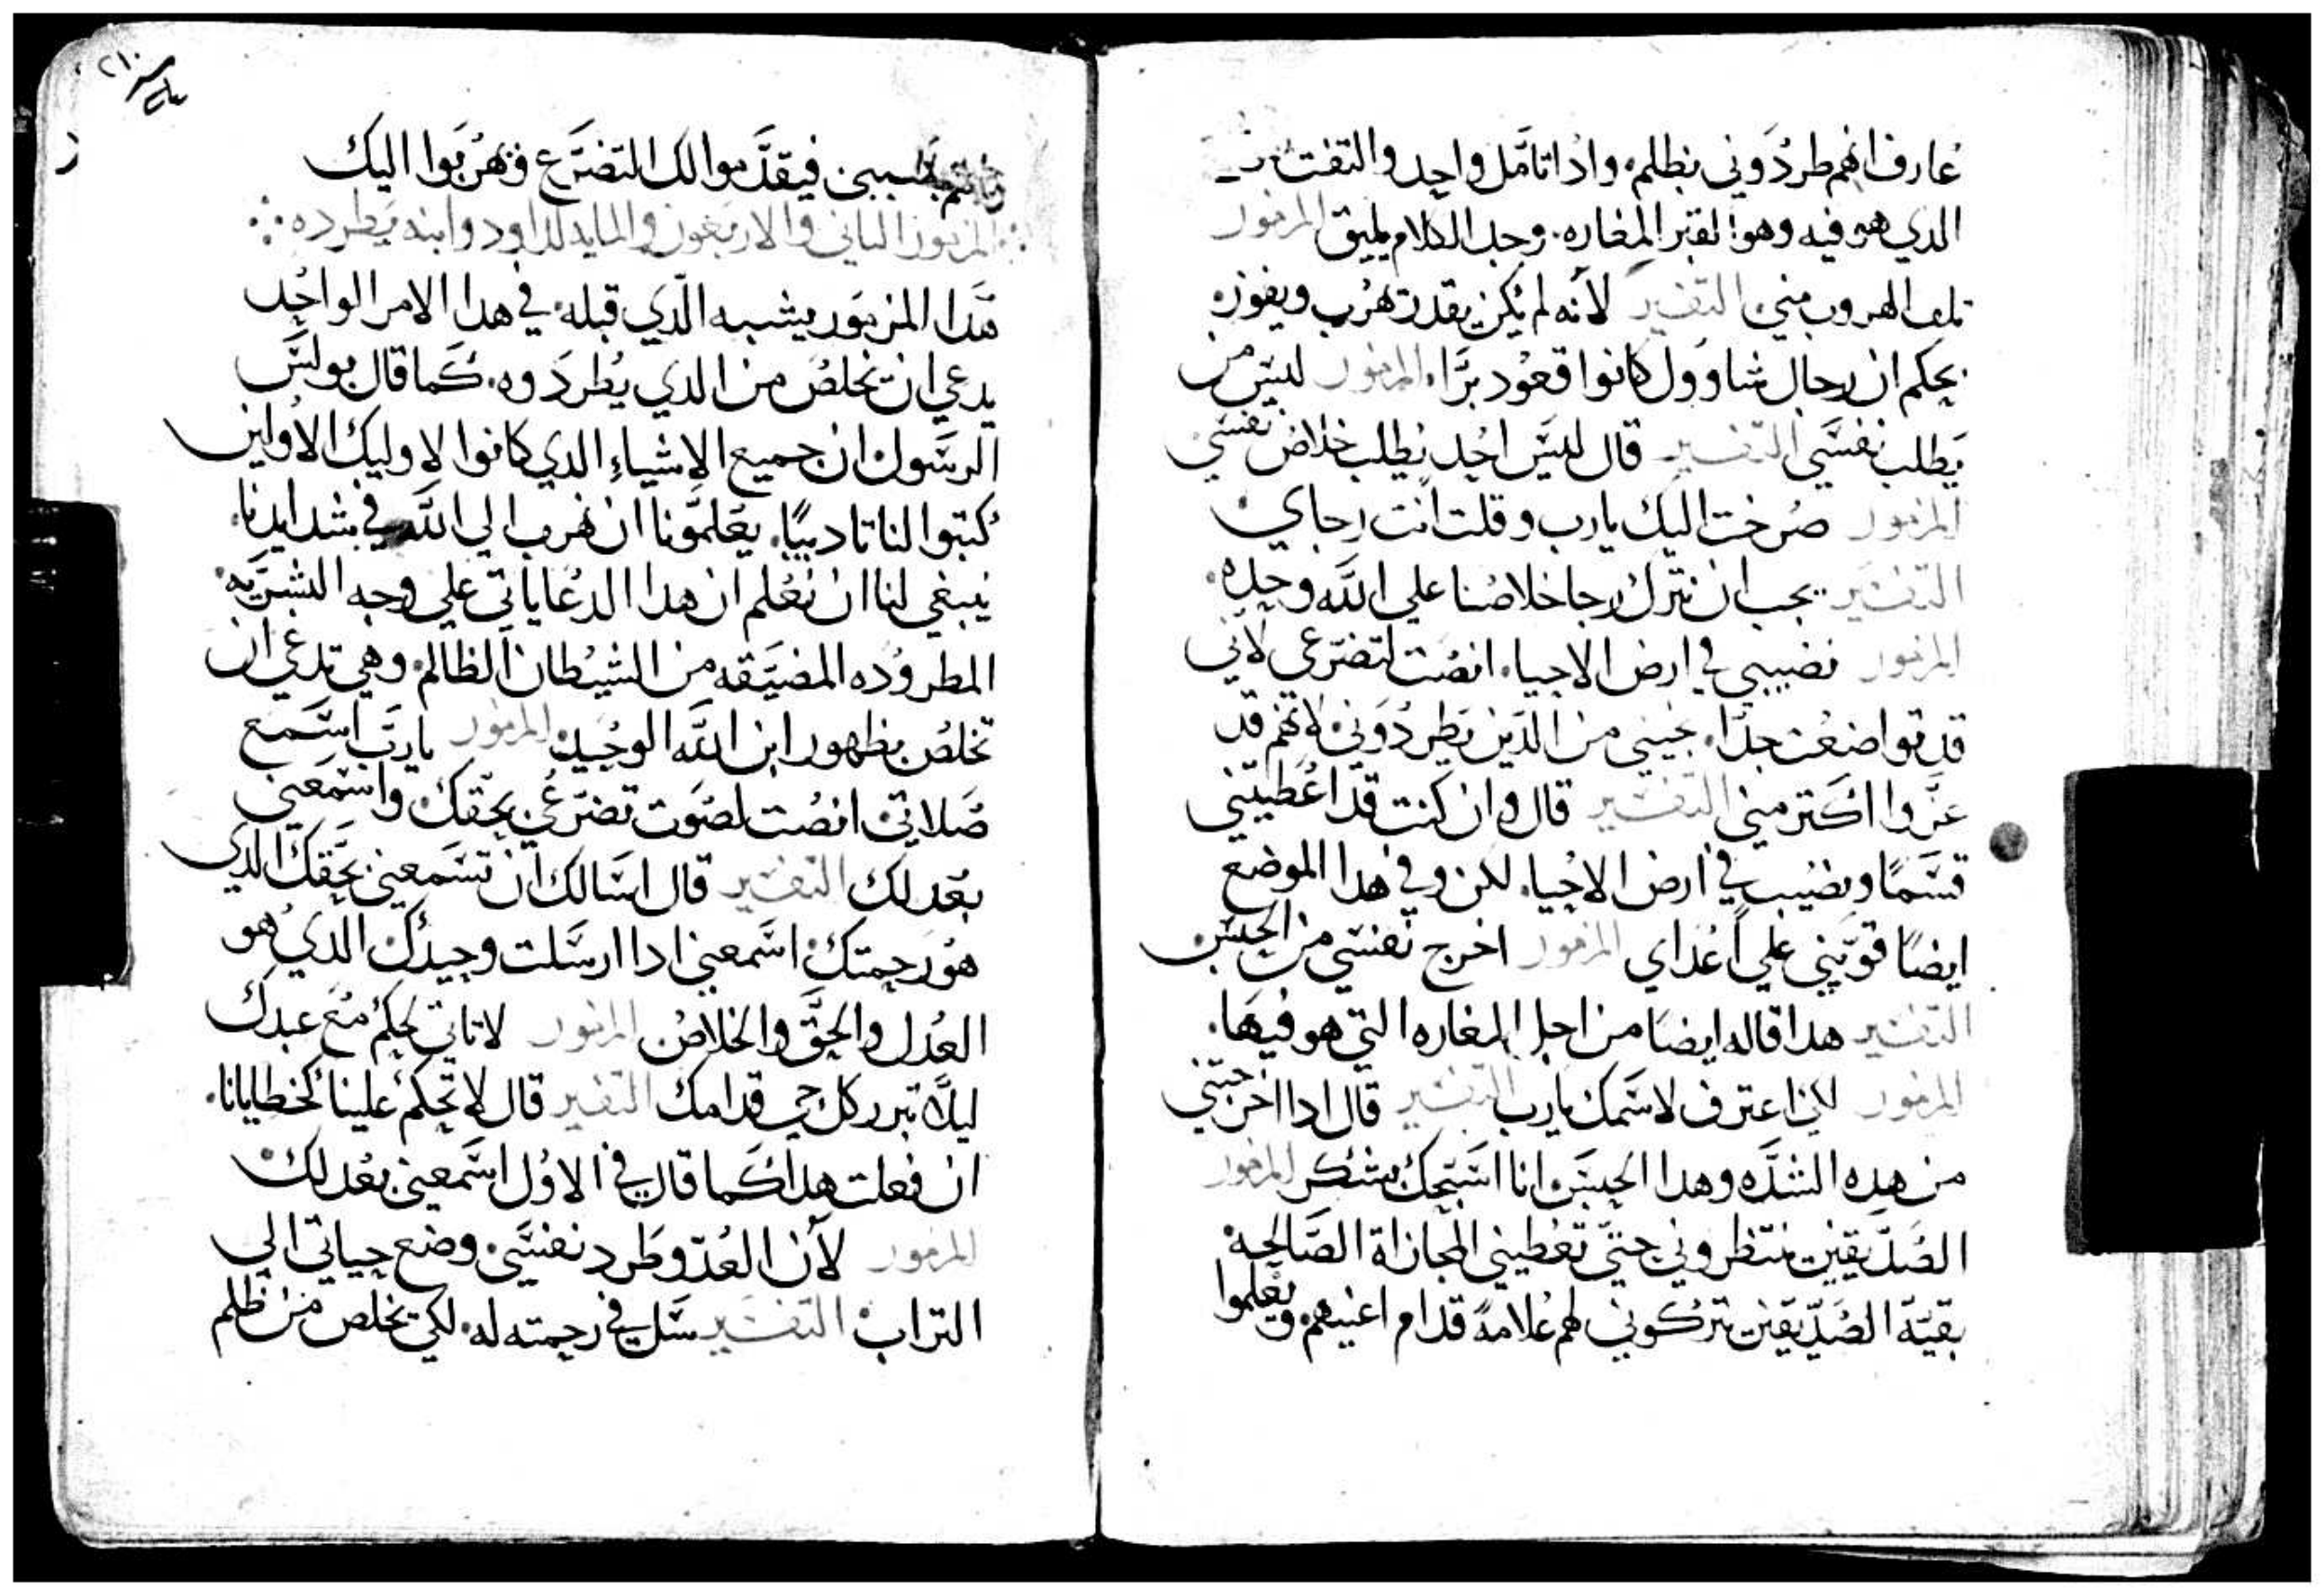 عارف انهم طردوني بظلم. وادا تامل واحد والتفت
الدي هو فيه وهوا لقبر المغاره. وجد الكلام يليق المزمور
تلف الهروب مني التفسير لانه لم يكن يقدر تهرب ويفوز.
بحكم ان رجال شاوول كانوا قعود برا. المزمور ليس من
يطلب نفسي التفسير قال ليس احد يطلب خلاص نفسي
المزمور صرخت اليك يارب وقلت انت رجاي
التفسير يجب ان نترك رجا خلاصنا علي الله وحده.
المزمور نصيبي في ارض الاحيا. انصت لتضرعي لاني
قد تواضعت جدا. نجيني من الدين يطردوني لانهم قد
عزوا اكتر مني التفسير قال وان كنت قد اعطيتني
قسما ونصيب في ارض الاحيا. لكن وفي هدا الموضع
ايضا قويني علي اعداي المزمور اخرج نفسي من الحبس
التفسير هدا قاله ايضا من اجل المغاره التي هو فيها.
المزمور لكن اعترف لاسمك يارب التفسير قال ادا اخرجتني
من هده الشده وهدا الحبس انا اسبحك بشكر المزمور
الصديقين منتظروني حتي تعطيني المجازاة الصالحة
بقية الصديقين تركوني لهم علامة قدام اعينهم ويعلموا
٢١٠
بسببي فيقدموا لك التضرع ويهربوا اليك
المزمور التاني والاربعون والمايه لداود وابنه يطرده
هدا المزمور يشبه الدي قبله في هدا الامر الواحد
يدعي ان تخلص من الدي يطردوه. كما قال بولس
الرسول ان جميع الاشياء الدي كانوا لاوليك الاولين
كتبوا لنا تاديبا. يعلمونا ان نهرب الي الله في شدايدنا.
ينبغي لنا ان نعلم ان هدا الدعا ياتي علي وجه البشريه
المطروده المضيقه من الشيطان الظالم. وهي تدعي ان
تخلص بظهور ابن الله الوحيد المزمور يارب اسمع
صلاتي انصت لصوت تضرعي بحقك واسمعني
بعدلك التفسير قال اسالك ان تسمعني بحقك الدي
هو رحمتك اسمعني ادا ارسلت وحيدك الدي هو
العدل والحق والخلاص المزمور لا تاتي لحكم مع عبدك
ليلا تبرر كل حي قدامك التفسير قال لا تحكم علينا كخطايانا.
ان فعلت هدا كما قال في الاول اسمعني بعدلك
المزمور لان العدو طرد نفسي. وضع حياتي الي
التراب التفسير سل في رحمته له. لكي تخلص من ظلم